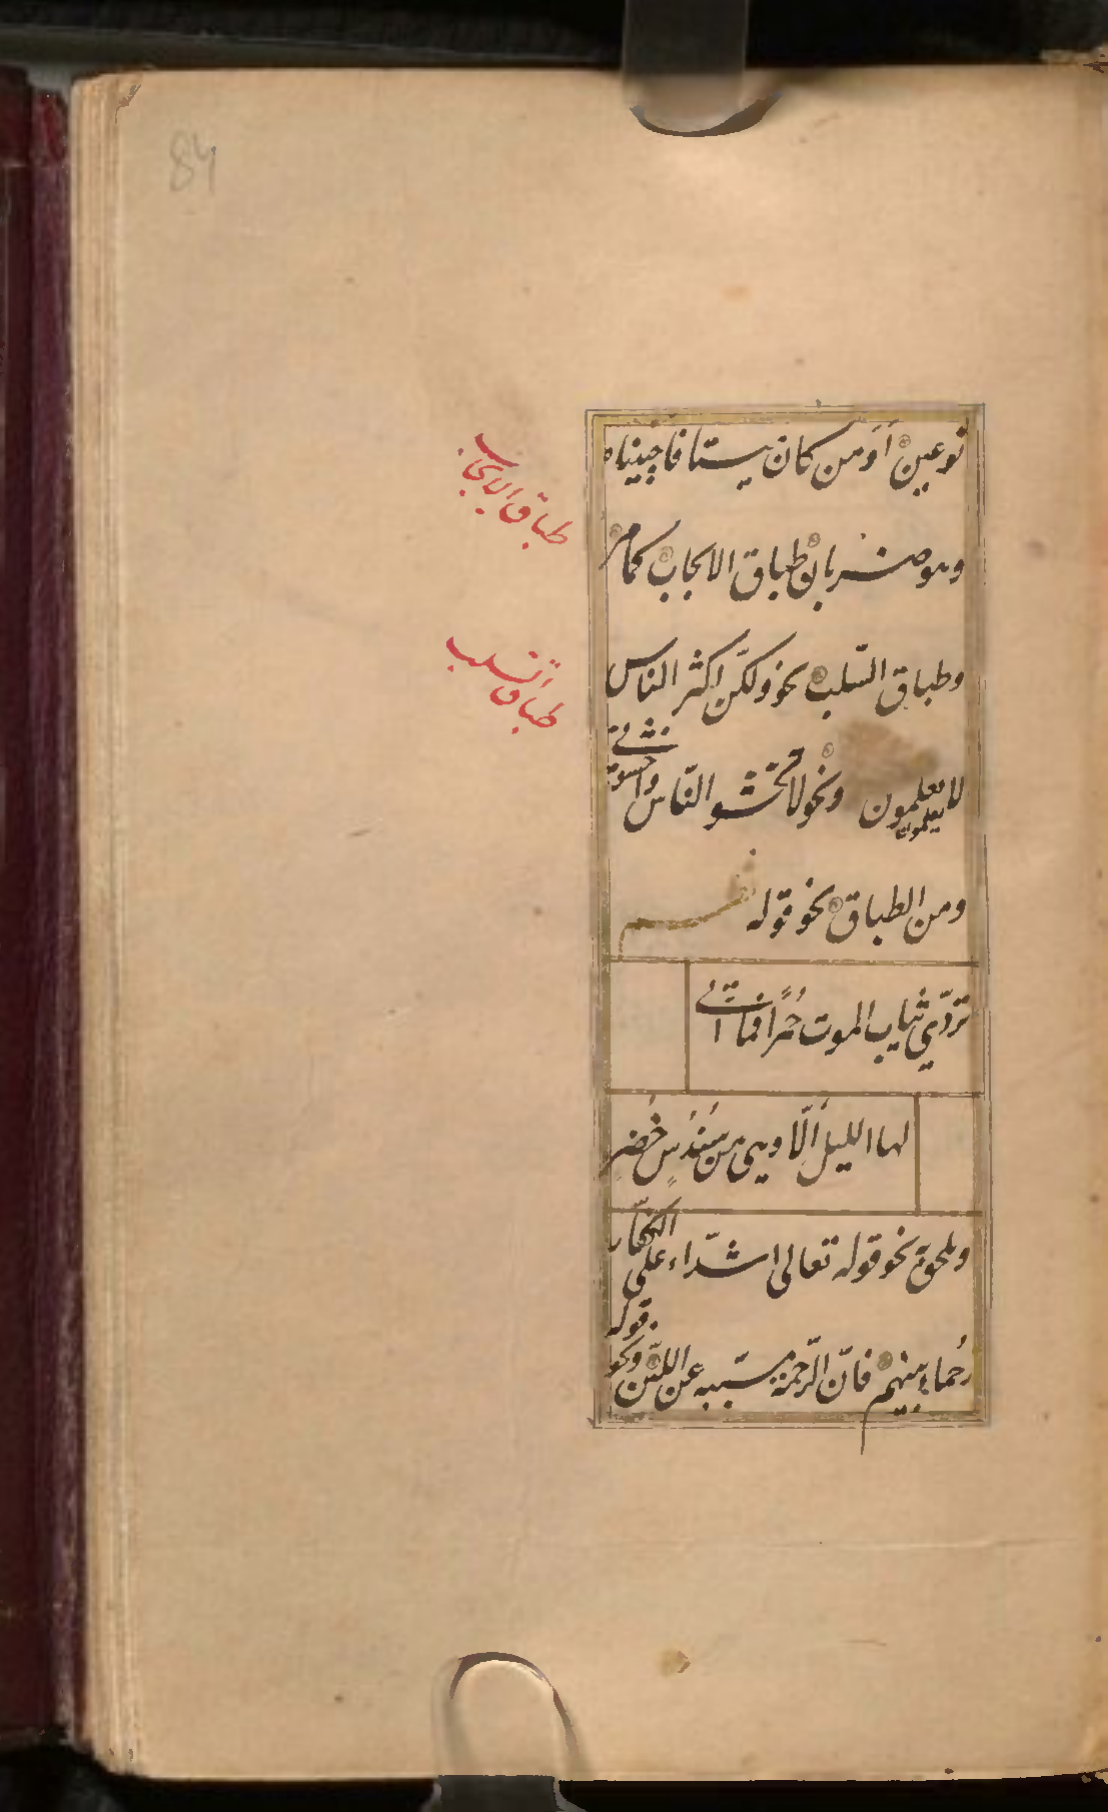 84
نوعين أَوَمن كان ميتا فاحييناه
وهو ضربان طباق الايجاب كما مر
طباق الايجاب
وطباق السّلب نحو ولكنّ اكثر الناس
طباق السلب
لا يعلمون يعلمون ونحو لا تخشو النّاس واخشونى
ومن الطباق نحو قوله
تردّى ثياب الموت حُمرًا فما اتى
لها الليل اِلّا وهى من سُندُسٍ خُضرٍ
ويلحق نحو قوله تعالى اشدّاء على الكفّار
رُحماء بينهم فانّ الرّحمة مسبّبه عن اللّين ونحو قوله